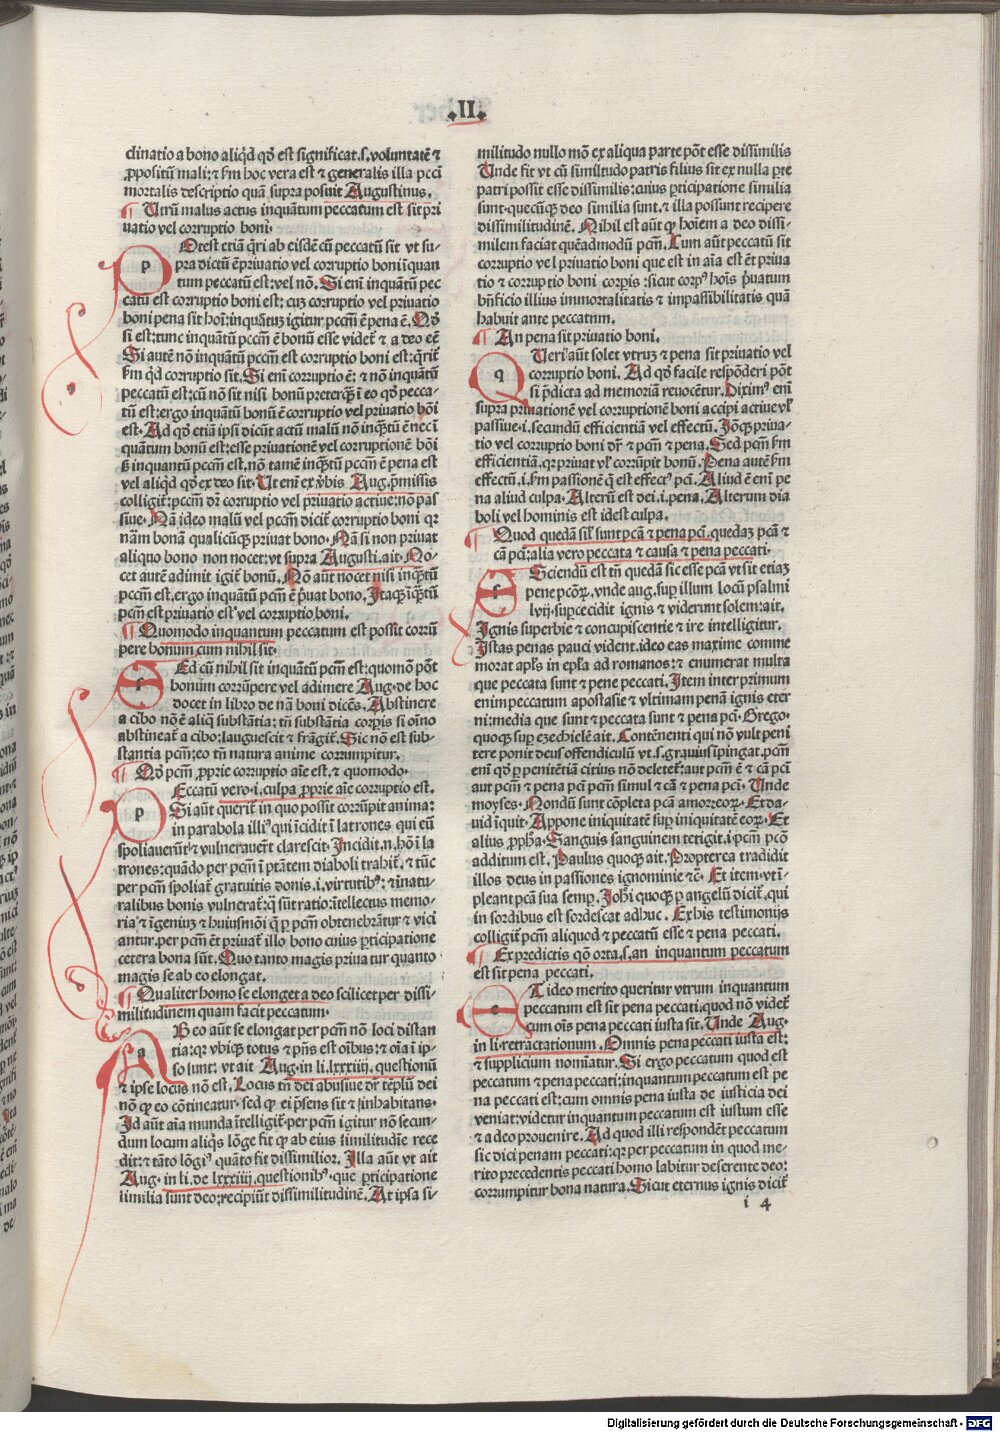 .II.
dinatio a bono aliqđ qđ est significat.s.voluntatē ⁊
ꝓpositū mali:⁊ fm hoc vera est ⁊ generalis illa pcci
mortalis descriptio quā supra posuit Augustinus.
¶ Utrū malus actus inquātum peccatum est sit pri
uatio vel corruptio boni·
POtest etiā q̄ri ab eisdē cū peccatū sit vt su-
pra dictū ē priuatio vel corruptio boni īquan
tum peccatū est:vel nō. Si enī inquātū pec
catū est corruptio boni est: cuꝫ corruptio vel priuatio
boni pena sit hoī:inquātuꝫ igitur pccm̄ ē pena ē. Qđ
si est:tunc inquātū pccm̄ ē bonū esse videt̄ ⁊ a deo eē
Si autē nō inquātū pccm̄ est corruptio boni est:q̄rit̄
fm qđ corruptio sit. Si enī corruptio ē: ⁊ nō inquātū
peccatū est:cū nō sit nisi bonū preterqȝ ī eo qđ pecca-
tū est:ergo inquātū bonū ē corruptio vel priuatio bōi
est. Ad qđ etiā ipsi dicūt actū malū nō inq̄tū ē nec ī
quātum bonū est:esse priuationē vel corruptionē bōi
ß inquantū pccm̄ est, nō tamē inq̄tū pccm̄ ē pena est
vel aliqđ qđ ex deo sit· Ut enī ex v̄bis Aug.p̄missis
colligit̄:pccm̄ dr̄ corruptio vel priuatio actiue:nō pas
siue. Nā ideo malū vel pccm̄ dicit̄ corruptio boni qr
nām bonā qualicūqȝ priuat bono. Nā si non priuat
aliquo bono non nocet:vt supra Augusti.ait· No-
cet autē adimit igit̄ bonū. Nō aūt nocet nisi inq̄tū
pccm̄ est,ergo inquātū pccm̄ ē p̄uat bono. Itaqȝ īq̄tū
pccm̄ est priuatio est vel corruptio boni.
¶ Quomodo inquantum peccatum est possit corrū
pere bonum cum nihil sit·
SEd cū nihil sit inquātū pccm̄ est:quomō pōt
bonum corrūpere vel adimere Aug.de hoc
docet in libro de nā boni dicēs. Abstinere
a cibo nō ē aliq̄ substātia: tn̄ substātia corpis si oīno
abstineat̄ a cibo:languescit ⁊ frāgit̄. Sic nō est sub-
stantia pcm̄:eo tn̄ natura anime corrumpitur.
¶ Qđ pcm̄ ꝓprie corruptio aīe est.⁊ quomodo·
PEccatū vero.i.culpa ꝓprie aīe corruptio est.
Si aūt querit̄ in quo possit corrūpit anima:
in parabola illi⁹ qui īcidit ī latrones qui eū
spoliauerūt ⁊ vulnerauert̄ clarescit. Incidit.n.hō ī la
trones:quādo per pcm̄ ī ptātem diaboli trahit̄. ⁊ tūc
per pcm̄ spoliat̄ gratuitis donis.i.virtutib⁹: ⁊ īnatu-
ralibus bonis vulnerat̄:q̄ sūt ratio:ītellectus memo-
ria ⁊ īgeniuꝫ ⁊ huiusmōi q̄ p pcm̄ obtenebrātur ⁊ vici
antur.per pcm̄ ēt priuat̄ illo bono cuius pticipatione
cetera bona sūt. Quo tanto magis priuatur quanto
magis se ab eo elongat.
¶ Qualiter homo se elonget a deo scilicet per dissi-
militudinem quam facit peccatum·
AB eo aūt se elongat per pcm̄ nō loci distan
tia:qr vbiqȝ totus ⁊ p̄ns est oībus:⁊ oīa ī ip-
so sunt: vt ait Aug.in li.lxxxiij.questionū
⁊ ipse locus nō est. Locus tn̄ dei abusiue dr̄ tēplū dei
nō qȝ eo cōtineatur· sed qȝ ei p̄sens sit ⁊ īnhabitans·
Id aūt aīa munda ītelligit̄·per pcm̄ igitur nō secun-
dum locum aliq̄s lōge fit qȝ ab eius similitudīe rece
dit:⁊ tāto lōgi⁹ quāto fit dissimilior. Illa aūt vt ait
Aug. in li.de lxxxiij.questionib⁹. que pticipatione
similia sunt deo:recipiūt dissimilitudinē. At ipsa si-
militudo nullo mō ex aliqua parte pōt esse dissimilis
Unde fit vt cū similitudo patris filius sit ex nulla pte
patri possit esse dissimilis:cuius pticipatione similia
sunt·quecūqȝ deo similia sunt.⁊ illa possunt recipere
dissimilitudinē. Nihil est aūt qȝ hoīem a deo dissi-
milem faciat quēadmodū pcm̄. Cum aūt peccatū sit
corruptio vel priuatio boni que est in aīa est ēt priua
tio ⁊ corruptio boni corpis :sicut corp⁹ hoīs p̄uatum
bn̄ficio illius immortalitatis ⁊ impassibilitatis quā
habuit ante peccatum.
¶ An pena sit priuatio boni.
QUeri aūt solet vtruꝫ ⁊ pena sit priuatio vel
corruptio boni. Ad qđ facile respōderi pōt
si p̄dicta ad memoriā reuocētur. Diximᵘs enī
supra priuationē vel corruptionē boni accipi actiue vl̄
passiue.i.secundū efficientiā vel effectū. Iōqȝ priua-
tio vel corruptio boni dr̄ ⁊ pcm̄ ⁊ pena. Sed pcm̄ fm
efficientiā.qr priuat vl̄ corrūpit bonū. Pena autē fm
effectū.i.fm passionē q̄ est effect⁹ pcī. Aliud ē enī pe
na aliud culpa. Alterū est dei.i.pena. Alterum dia
boli vel hominis est idest culpa.
¶ Quod quedā sil̄ sunt pcā ⁊ pena pcī.quedaꝫ pcā ⁊
cā pcī:alia vero peccata ⁊ causa ⁊ pena peccati·
SSciendū est tn̄ quedā sic esse pcā vt sit etiaꝫ
pene pcōꝝ.vnde aug.sup illum locū psalmi
lvij·supcecidit ignis ⁊ viderunt solem:ait.
Ignis superbie ⁊ concupiscentie ⁊ ire intelligitur.
Istas penas pauci vident.ideo eas maxime comme
morat apl̄s in epl̄a ad romanos:⁊ enumerat multa
que peccata sunt ⁊ pene peccati. Item inter primum
enim peccatum apostasie ⁊ vltimam penā ignis eter
ni:media que sunt ⁊ peccata sunt ⁊ pena pcī· Grego·
quoqȝ sup ezechielē ait. Contēnenti qui nō vult peni
tere ponit deus offendiculū vt.s.grauius īpingat.pcm̄
enī qđ p penitētiā citius nō deletet̄:aut pcm̄ ē ⁊ cā pcī
aut pcm̄ ⁊ pena pcī pcm̄ simul ⁊ cā ⁊ pena pcī. Unde
moyses. Nondū sunt cōpleta pcā amorreoꝝ. Et da-
uid īquit. Appone iniquitatē sup iniquitatē eoꝝ. Et
alius ꝓpha. Sanguis sanguinem tetigit.i.pcm̄ pcō
additum est. Paulus quoqȝ ait. Propterea tradidit
illos deus in passiones ignominie ⁊c̄. Et item·vt ī-
pleant pcā sua semp. Johi quoqȝ p angelū dicit̄.qui
in sordibus est sordescat adhuc. Ex his testimonijs
colligit̄ pcm̄ aliquod ⁊ peccatū esse ⁊ pena peccati.
¶ Ex predictis qō orta.s.an inquantum peccatum
est sit pena peccati.
ET ideo merito queritur vtrum inquantum
peccatum est sit pena peccati:quod nō videt̄
cum oīs pena peccati iusta sit. Unde Aug.
in li.retractationum. Omnis pena peccati iusta est:
⁊ supplicium nomīatur. Si ergo peccatum quod est
peccatum ⁊ pena peccati:inquantum peccatum est pe
na peccati est:cum omnis pena iusta de iusticia dei
veniat:videtur inquantum peccatum est iustum esse
⁊ a deo prouenire. Ad quod illi respondēt peccatum
sic dici penam peccati:qr per peccatum in quod me-
rito precedentis peccati homo labitur deserente deo:
corrumpitur bona natura. Sicut eternus ignis dicit̄
i 4
Digitalisierung gefördert durch die Deutsche Forschungsgemeinschaft - DFG